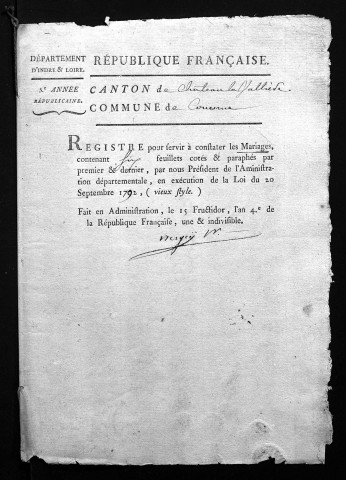 DÉPARTEMENT
D'INDRE & LOIRE.
5e ANNÉE
RÉPUBLICAINE.
RÉPUBLIQUE FRANÇAISE.
CANTON de Chateau la Valliere
COMMUNE de
REGISTRE pour servir à constater les Mariages,
contenant six feuillets cotés & paraphés par
premier & dernier, par nous Président de l'Aministra-
tration départementale, en exécution de la Loi du 20
Septembre 1792, ( vieux style. )
Fait en Administration, le 15 Fructidor, l'an 4.e de
la République Française, une & indivisible.